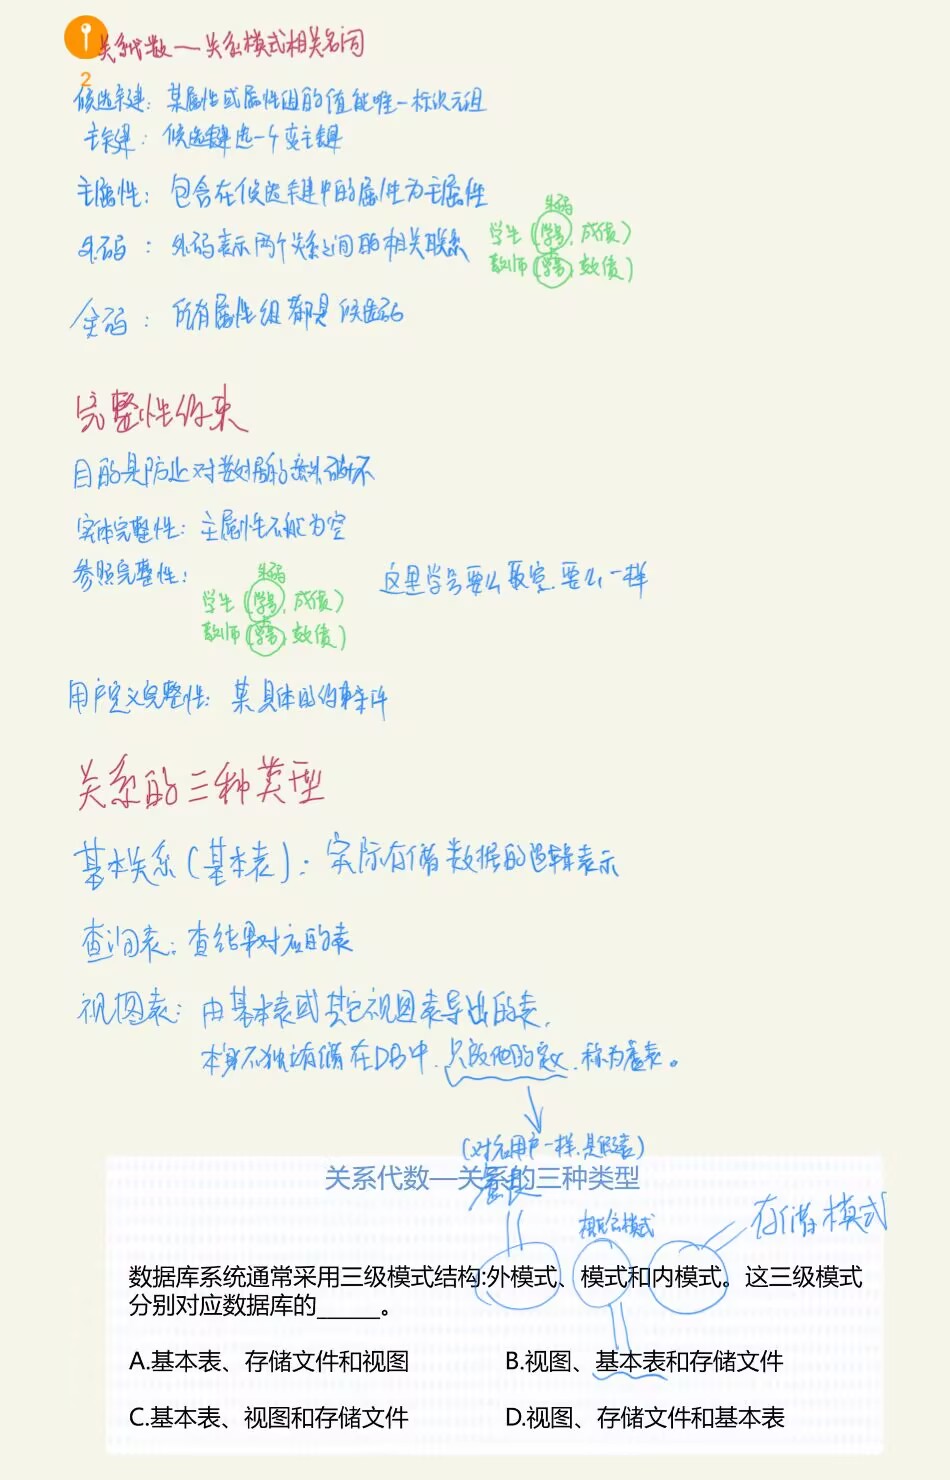 2
关系代数—关系模式相关名词
候选键：某属性或属性组的值能唯一标识元组
主键：候选键选一个变主键
主属性：包含在候选键中的属性为主属性
外码：外码表示两个关系之间的相关联系
外码
学生（学号，成绩）
教师（学号，效绩）
全码：所有属性组都是候选码
完整性约束
目的是防止对数据的意外破坏
实体完整性：主属性不能为空
参照完整性：
外码
学生（学号，成绩）
教师（学号，效绩）
这里学号要么取空，要么一样
用户定义完整性：某具体的约束条件
关系的三种类型
基本关系（基本表）：实际存储数据的逻辑表示
查询表：查结果对应的表
视图表：由基本表或其它视图表导出的表，
本身不独立存储在DB中，只放他的定义，称为虚表。
关系代数—关系的三种类型
概念模式
存储模式
数据库系统通常采用三级模式结构:外模式、模式和内模式。这三级模式
分别对应数据库的_____。
A.基本表、存储文件和视图
B.视图、基本表和存储文件
C.基本表、视图和存储文件
D.视图、存储文件和基本表